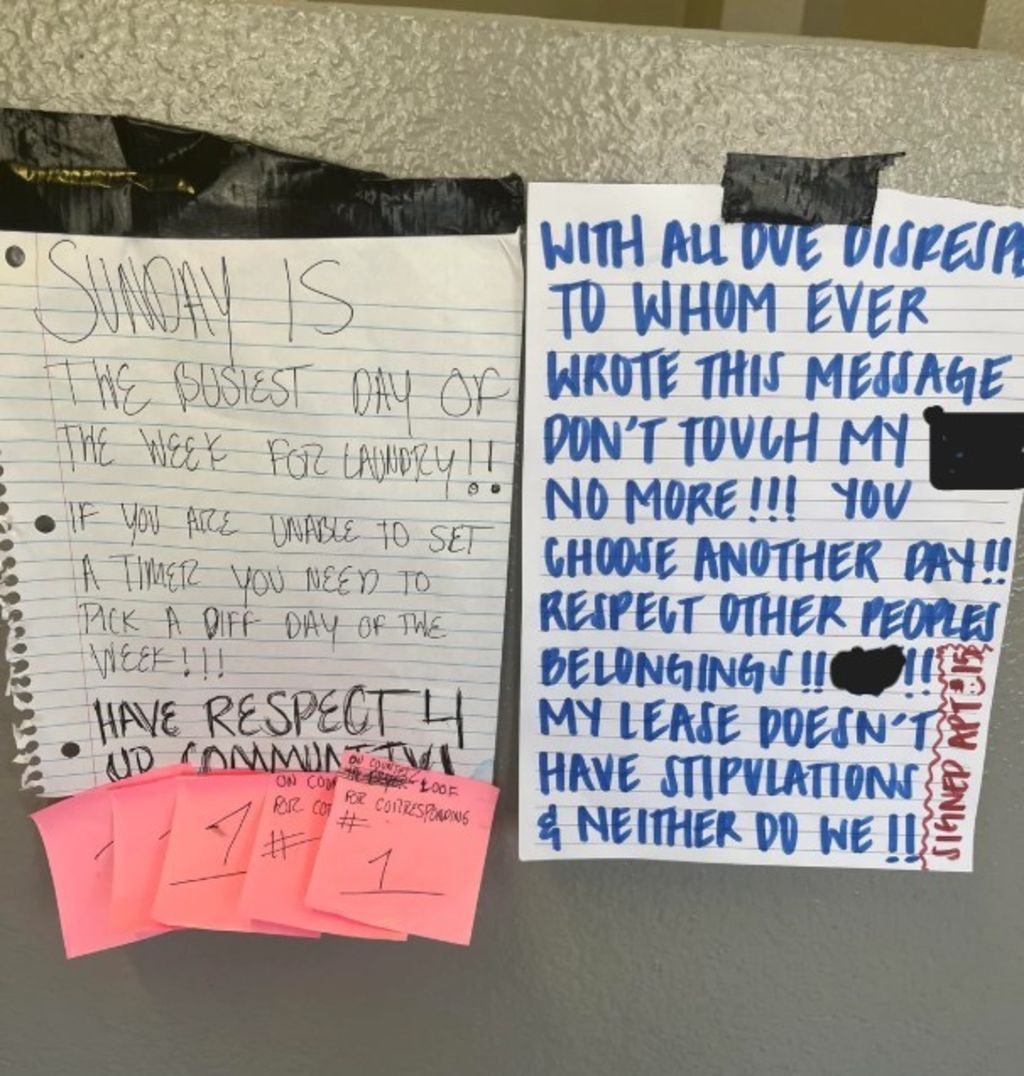 SUNDAY IS
THE BUSIEST DAY OF
THE WEEK FOR LAUNDRY!!
IF YOU ARE UNABLE TO SET
A TIMER YOU NEED TO
PICK A DIFF DAY OF THE
WEEK!!!
HAVE RESPECT 4
UR COMMUNITY!
1
ON COU
FOR CO
#
ON COUNTER
LOOK
FOR CORRESPONDING
#
1
WITH ALL DUE DISRESPE
TO WHOM EVER
WROTE THIS MESSAGE
DON'T TOUCH MY
NO MORE!!! YOU
CHOOSE ANOTHER DAY!!
RESPECT OTHER PEOPLES
BELONGINGS!! !!
MY LEASE DOESN'T
HAVE STIPULATIONS
& NEITHER DO WE!!
SIGNED APT 15